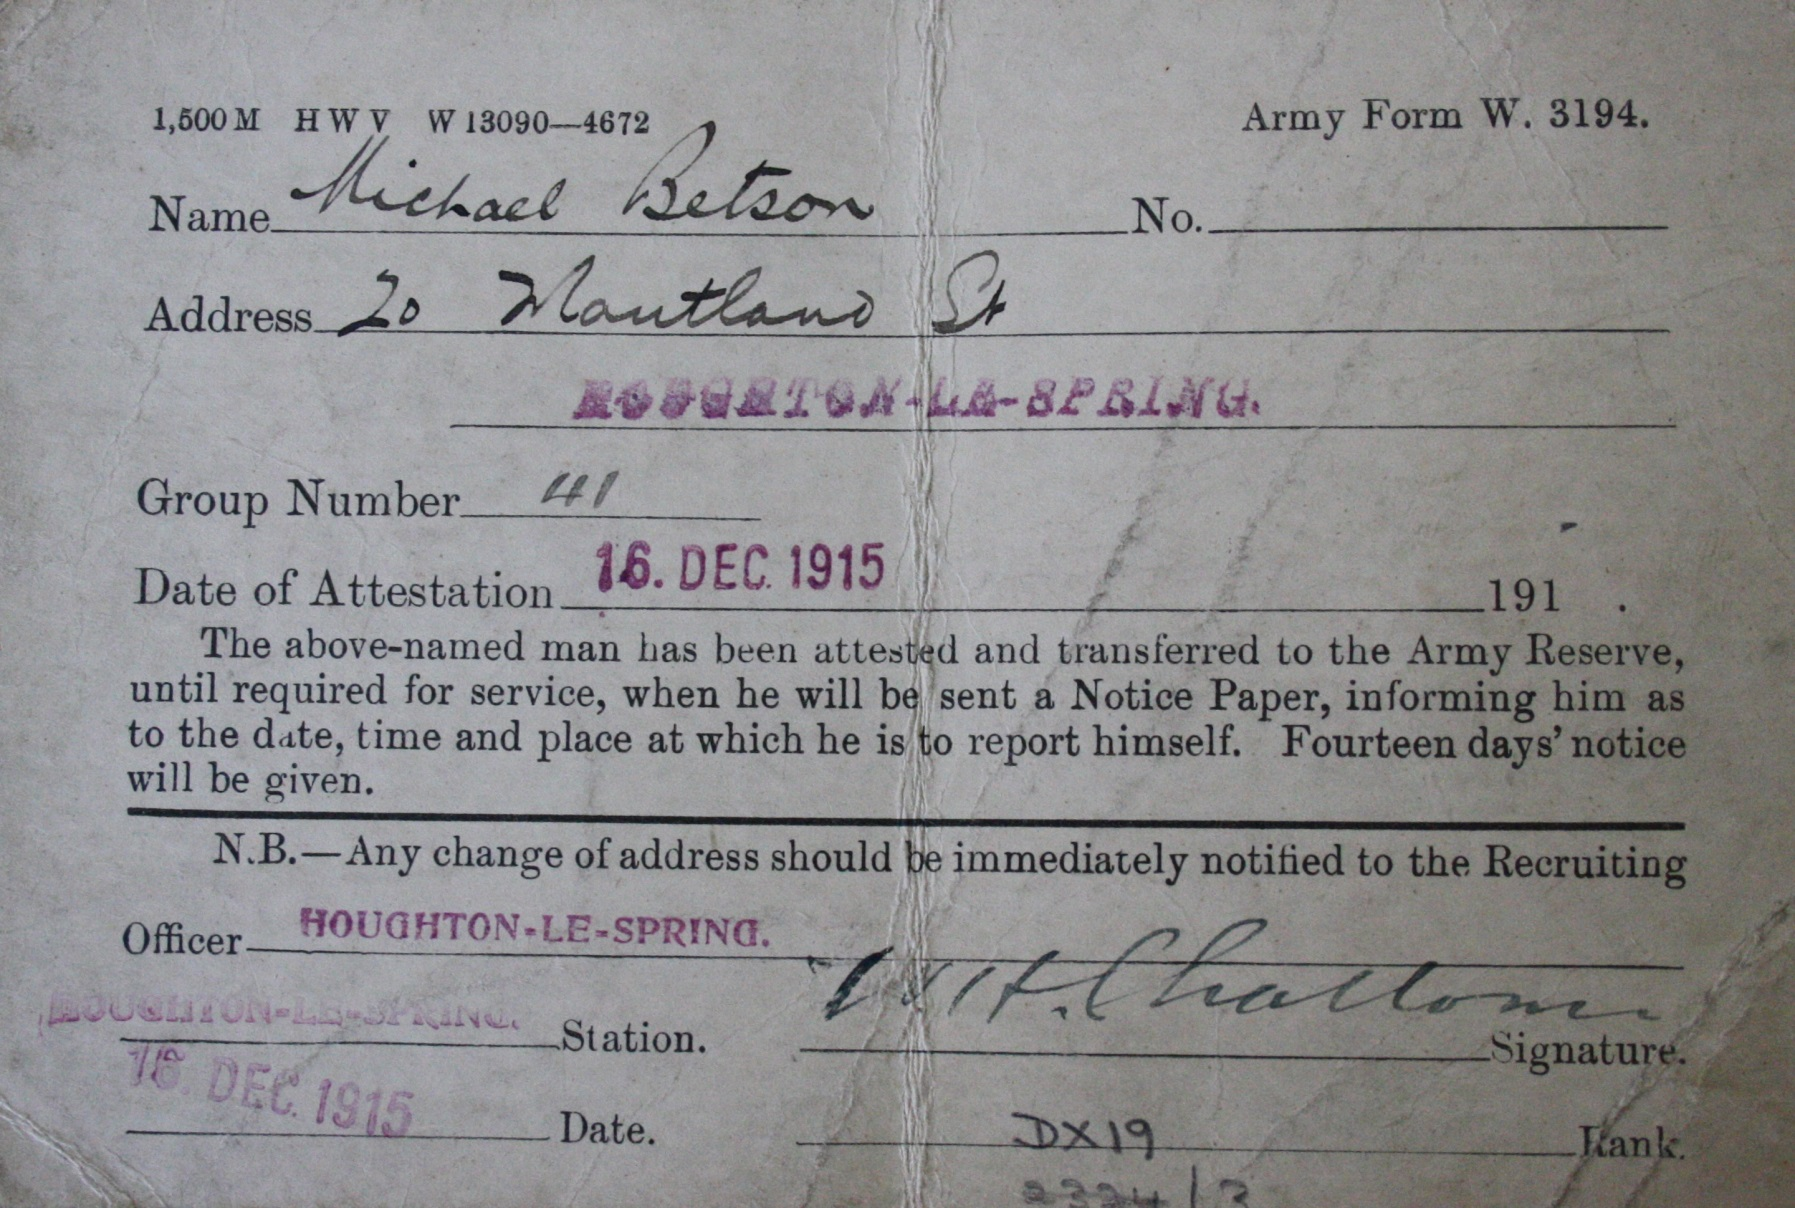 1,500 M HWV W 13090—4672 Army Form W. 3194.
Name Michael Betson No.
Address 20 Mautland St
HOUGHTON-LE-SPRING.
Group Number 41
Date of Attestation 16. DEC. 1915 191 .
The above-named man has been attested and transferred to the Army Reserve,
until required for service, when he will be sent a Notice Paper, informing him as
to the date, time and place at which he is to report himself. Fourteen days' notice
will be given.
N.B.—Any change of address should be immediately notified to the Recruiting
Officer HOUGHTON-LE-SPRING.
HOUGHTON-LE-SPRING. Station. Signature.
16. DEC. 1915 Date. DX19 Rank.